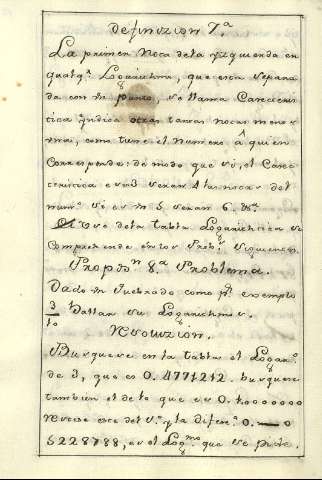 Definizion 7.ª
La primera Nota dela yzquierda en
qualq.ª Logarithmo, que esta separa
da con un punto, se llama Caracteris
tica yndica otras tantas notas menos
una, como tiene el numero â quien
corresponde: de modo que si, el Carac
teristica es 3 seran 4 las notas del
num.º si es un 5 seran 6. &.ª
El Uso dela tabla Logarithmica se
comprehende en los Prob.s siguientes.
Propós.n 8.ª Problema.
Dado un quebrado como p.r exemplo
3/10 hallar su Logarithmo.
Resoluzion.
Busquese en la tabla el Logar.º
de 3, que es 0.4771212. busquese
tambien el de 10 que es 0.10000000
Restese este del 1.º y la difer.a 0.
5228788, es el Log.mo que se pide.